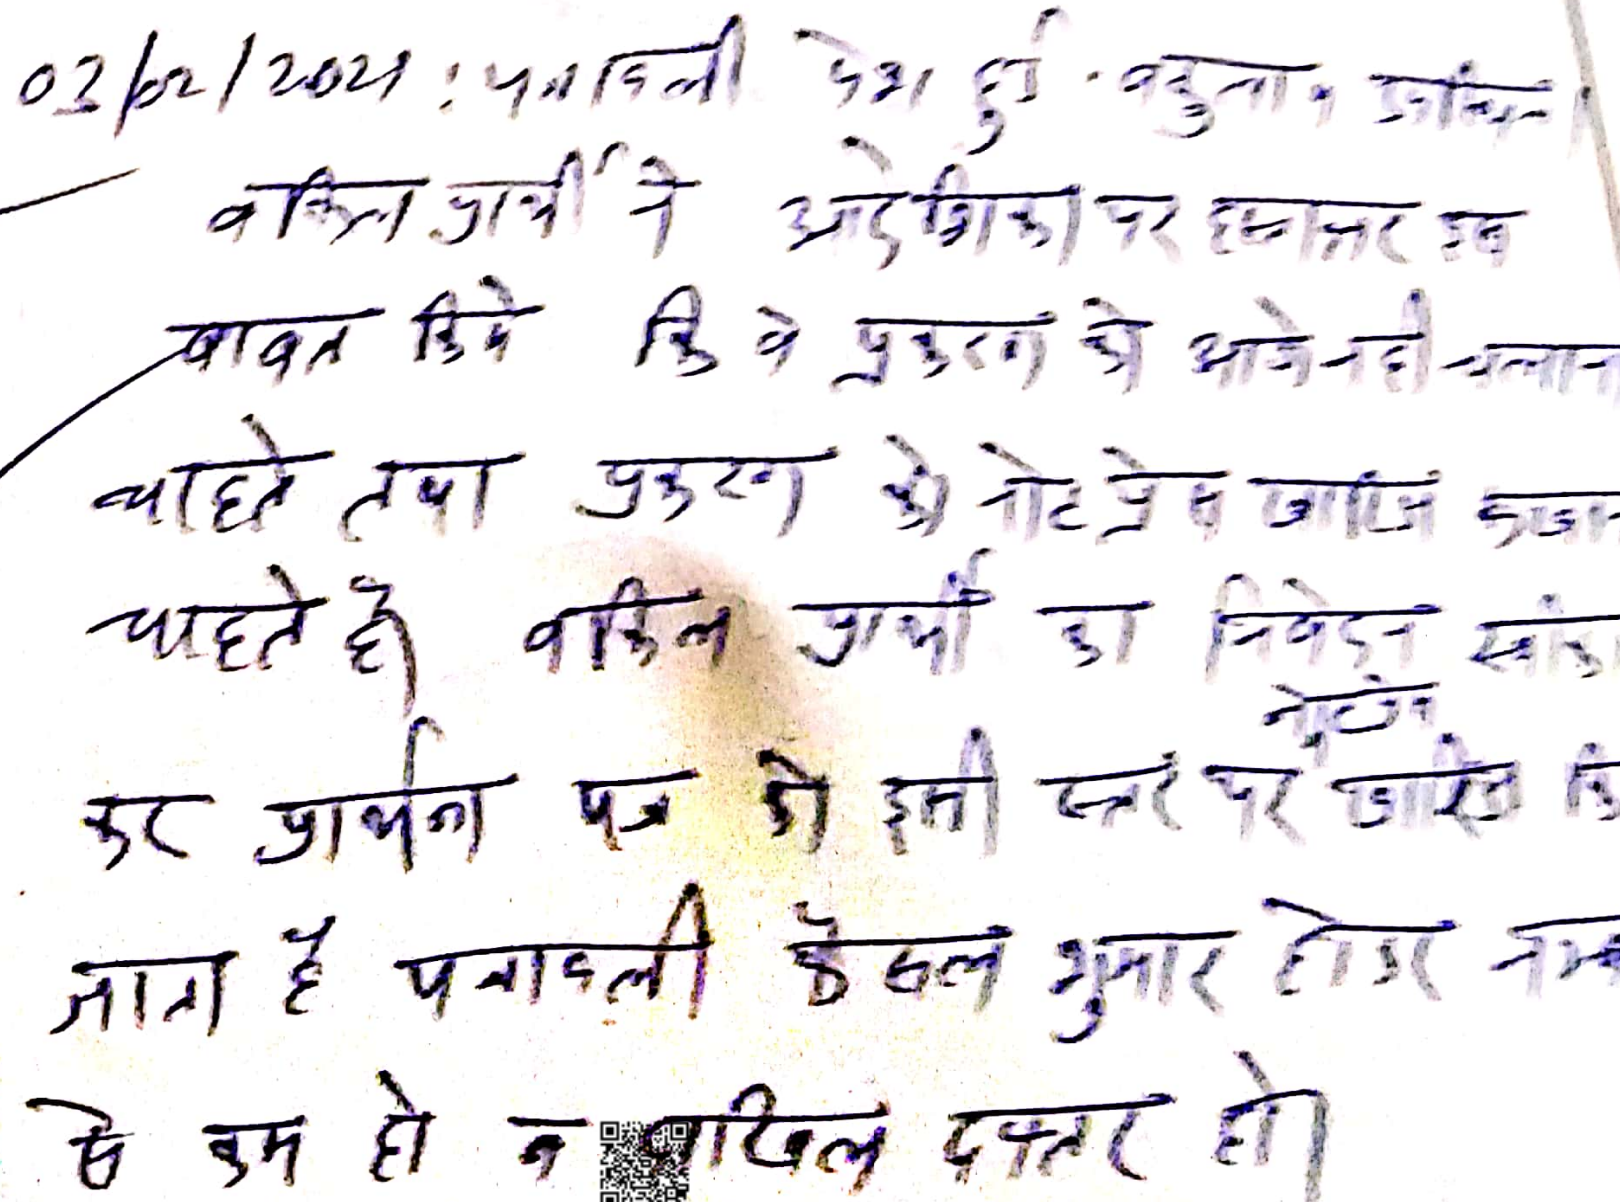 03/02/2021 : पत्रावली पेश हुई . वकुला.
वकिल प्रार्थी ने आदेशिका पर हस्ताक्षर इस
बाबत किये कि वे प्रकरण को आगे नही चलाना
चाहते तथा प्रकरण को नोट प्रेस खारिज
चाहते है। वकिल प्रार्थी का निवेदन
नोटप्रेस
कर प्रार्थना पत्र को इसी स्तर पर खारिज
जाता है पत्रावली फैसल शुमार होकर
से कम हो व दाखिल दफ्तर हो।